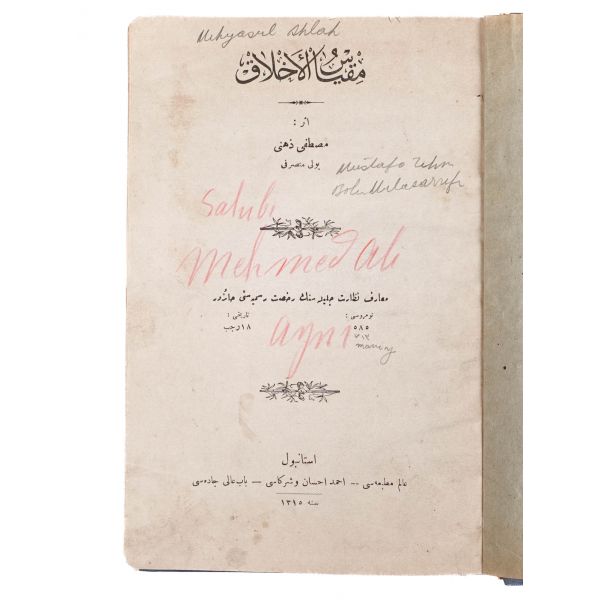 Mikyasül Ahlâk
مقياس الأخلاق
اثر :
مصطفى ذهنى
بولى متصرفى
Mustafa Zihni
Bolu Mutasarrıfı
Sahibi
Mehmed Ali
Ayni
معارف نظارت جليله سنك رخصت رسميه سنى حائزدر
نومروسى : تاريخى :
٥٨٥ ١٨ رجب
استانبول
عالم مطبعه سى — احمد احسان وشركاسى — باب عالى جاده سى
سنه ١٣١٥